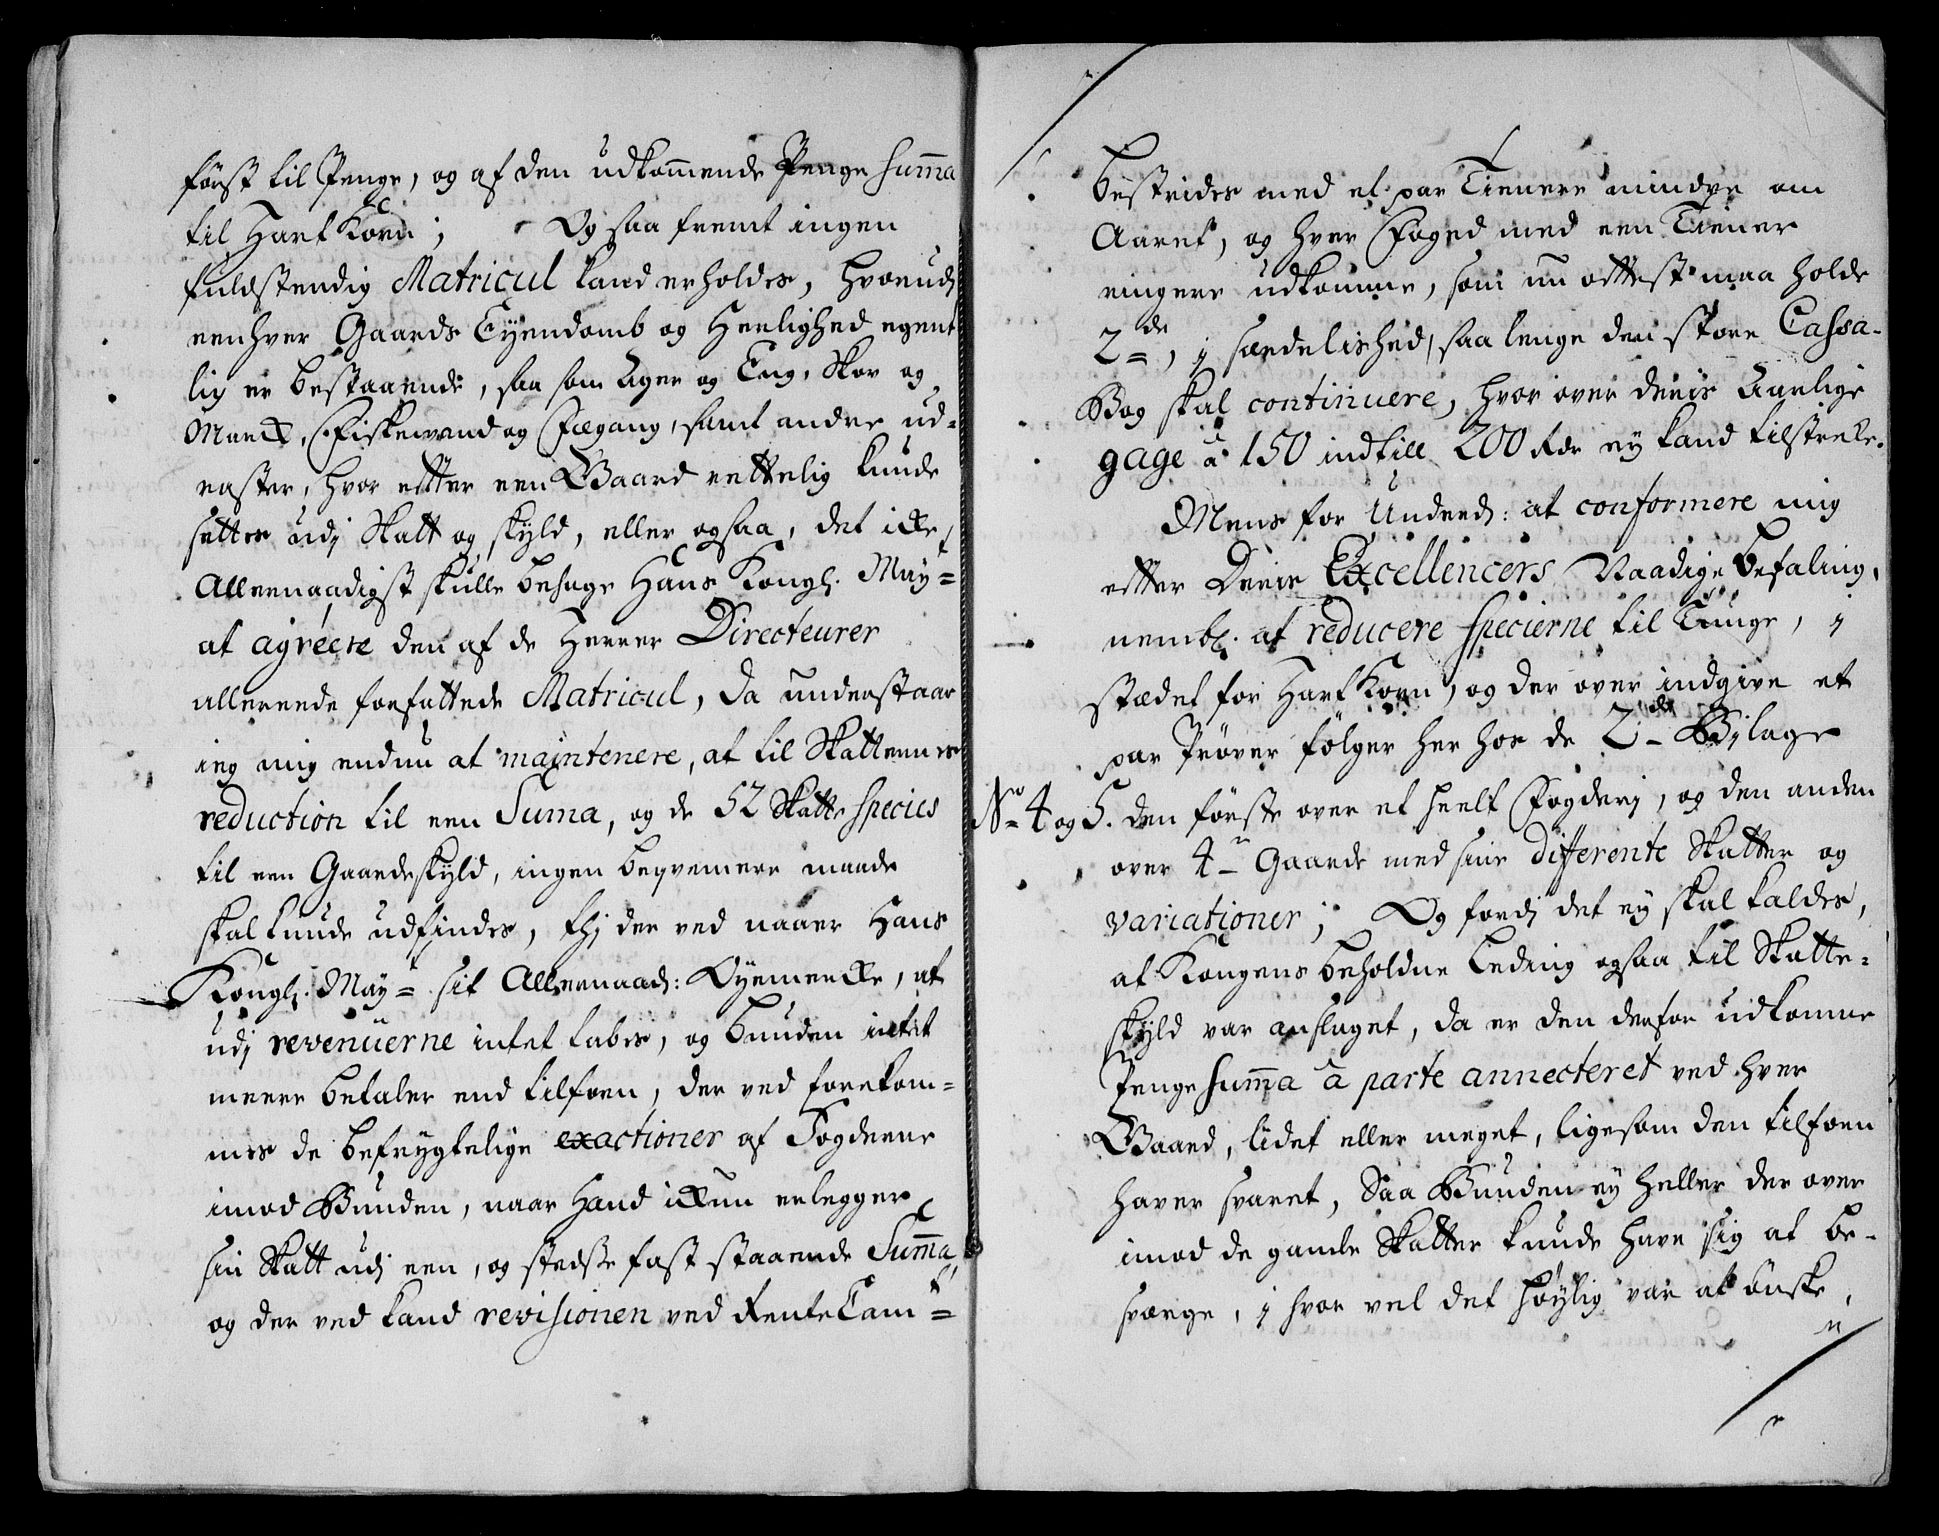 først til Penge, og af den udkommende Penge Suma
til Hart Korn; Og saa fremt ingen
fuldstendig Matricul kand erholdes, hvorudj
eenhver Gaards Eyendomb og Herlighed egent
lig er bestaaende, saa som Ager og Eng, Skov og
Marck, Fiskevand og Fægang, samt andre ud-
raster, hvor efter een Gaard rettelig kunde
settes udj Skatt og skyld, eller ogsaa, det icke
Allernaadigst skulle behage Hans Kongl. Mayt=
at agréere den af de Herrer Directeurer
allereede forfattede Matricul, da understaar
ieg mig endnu at maintenere, at til Skatternes
reduction til een Suma, og de 52 Skatte Species
til een Gaardeskyld, ingen beqvemere maade
skal kunde udfindes, thj der ved naaer Hans
Kongl. Mayt= sit Allernaad: Øyemercke, at
udj revenüerne intet tabes, og bunden intet
meere betaler end tilforn, der ved forekom=
mes de befrygtelige exactioner af Fogderne
imod Bunden, naar Hand ickun erlegger
sin Skatt udj een, og stedsse fast staaende Summa,
og der ved kand revisionen ved RenteCam=
bestrides med et par Tienere mindre om
Aaret, og hver Foged med een Tiener
ringere udkomme, som nu oftest maa holde
2de, j særdelished, saa lenge den store Cassa-
Bog skal continuere, hvor over deris Aarlige
gage â 150 indtill 200 Rdr ey kand tilstrekke.
Mens for Underd: at conformere mig
efter Deris Excellencers Naadige befaling,
nembl. at reducere Specierne til Tünge, j
stædet for Hart Korn, og der over indgive et
par Prøver følger her hos de 2de Bjlage
No 4 og 5. den første over et heelt Fogderj, og den anden
over 4re Gaarde med sine differente Skatter og
variationer; Og fordj det ey skal kaldes,
at Kongens beholdne Leding ogsaa til Skatte=
skyld var anslaget, da er den derfor udkomne
Penge Summa â parte annecteret ved hver
Gaard, lidet eller meget, ligesom den tilforn
haver svaret, Saa Bunden ey heller der over
imod de gamle Skatter kunde have sig at be-
sværge, j hvor vel det høylig var at ønske,